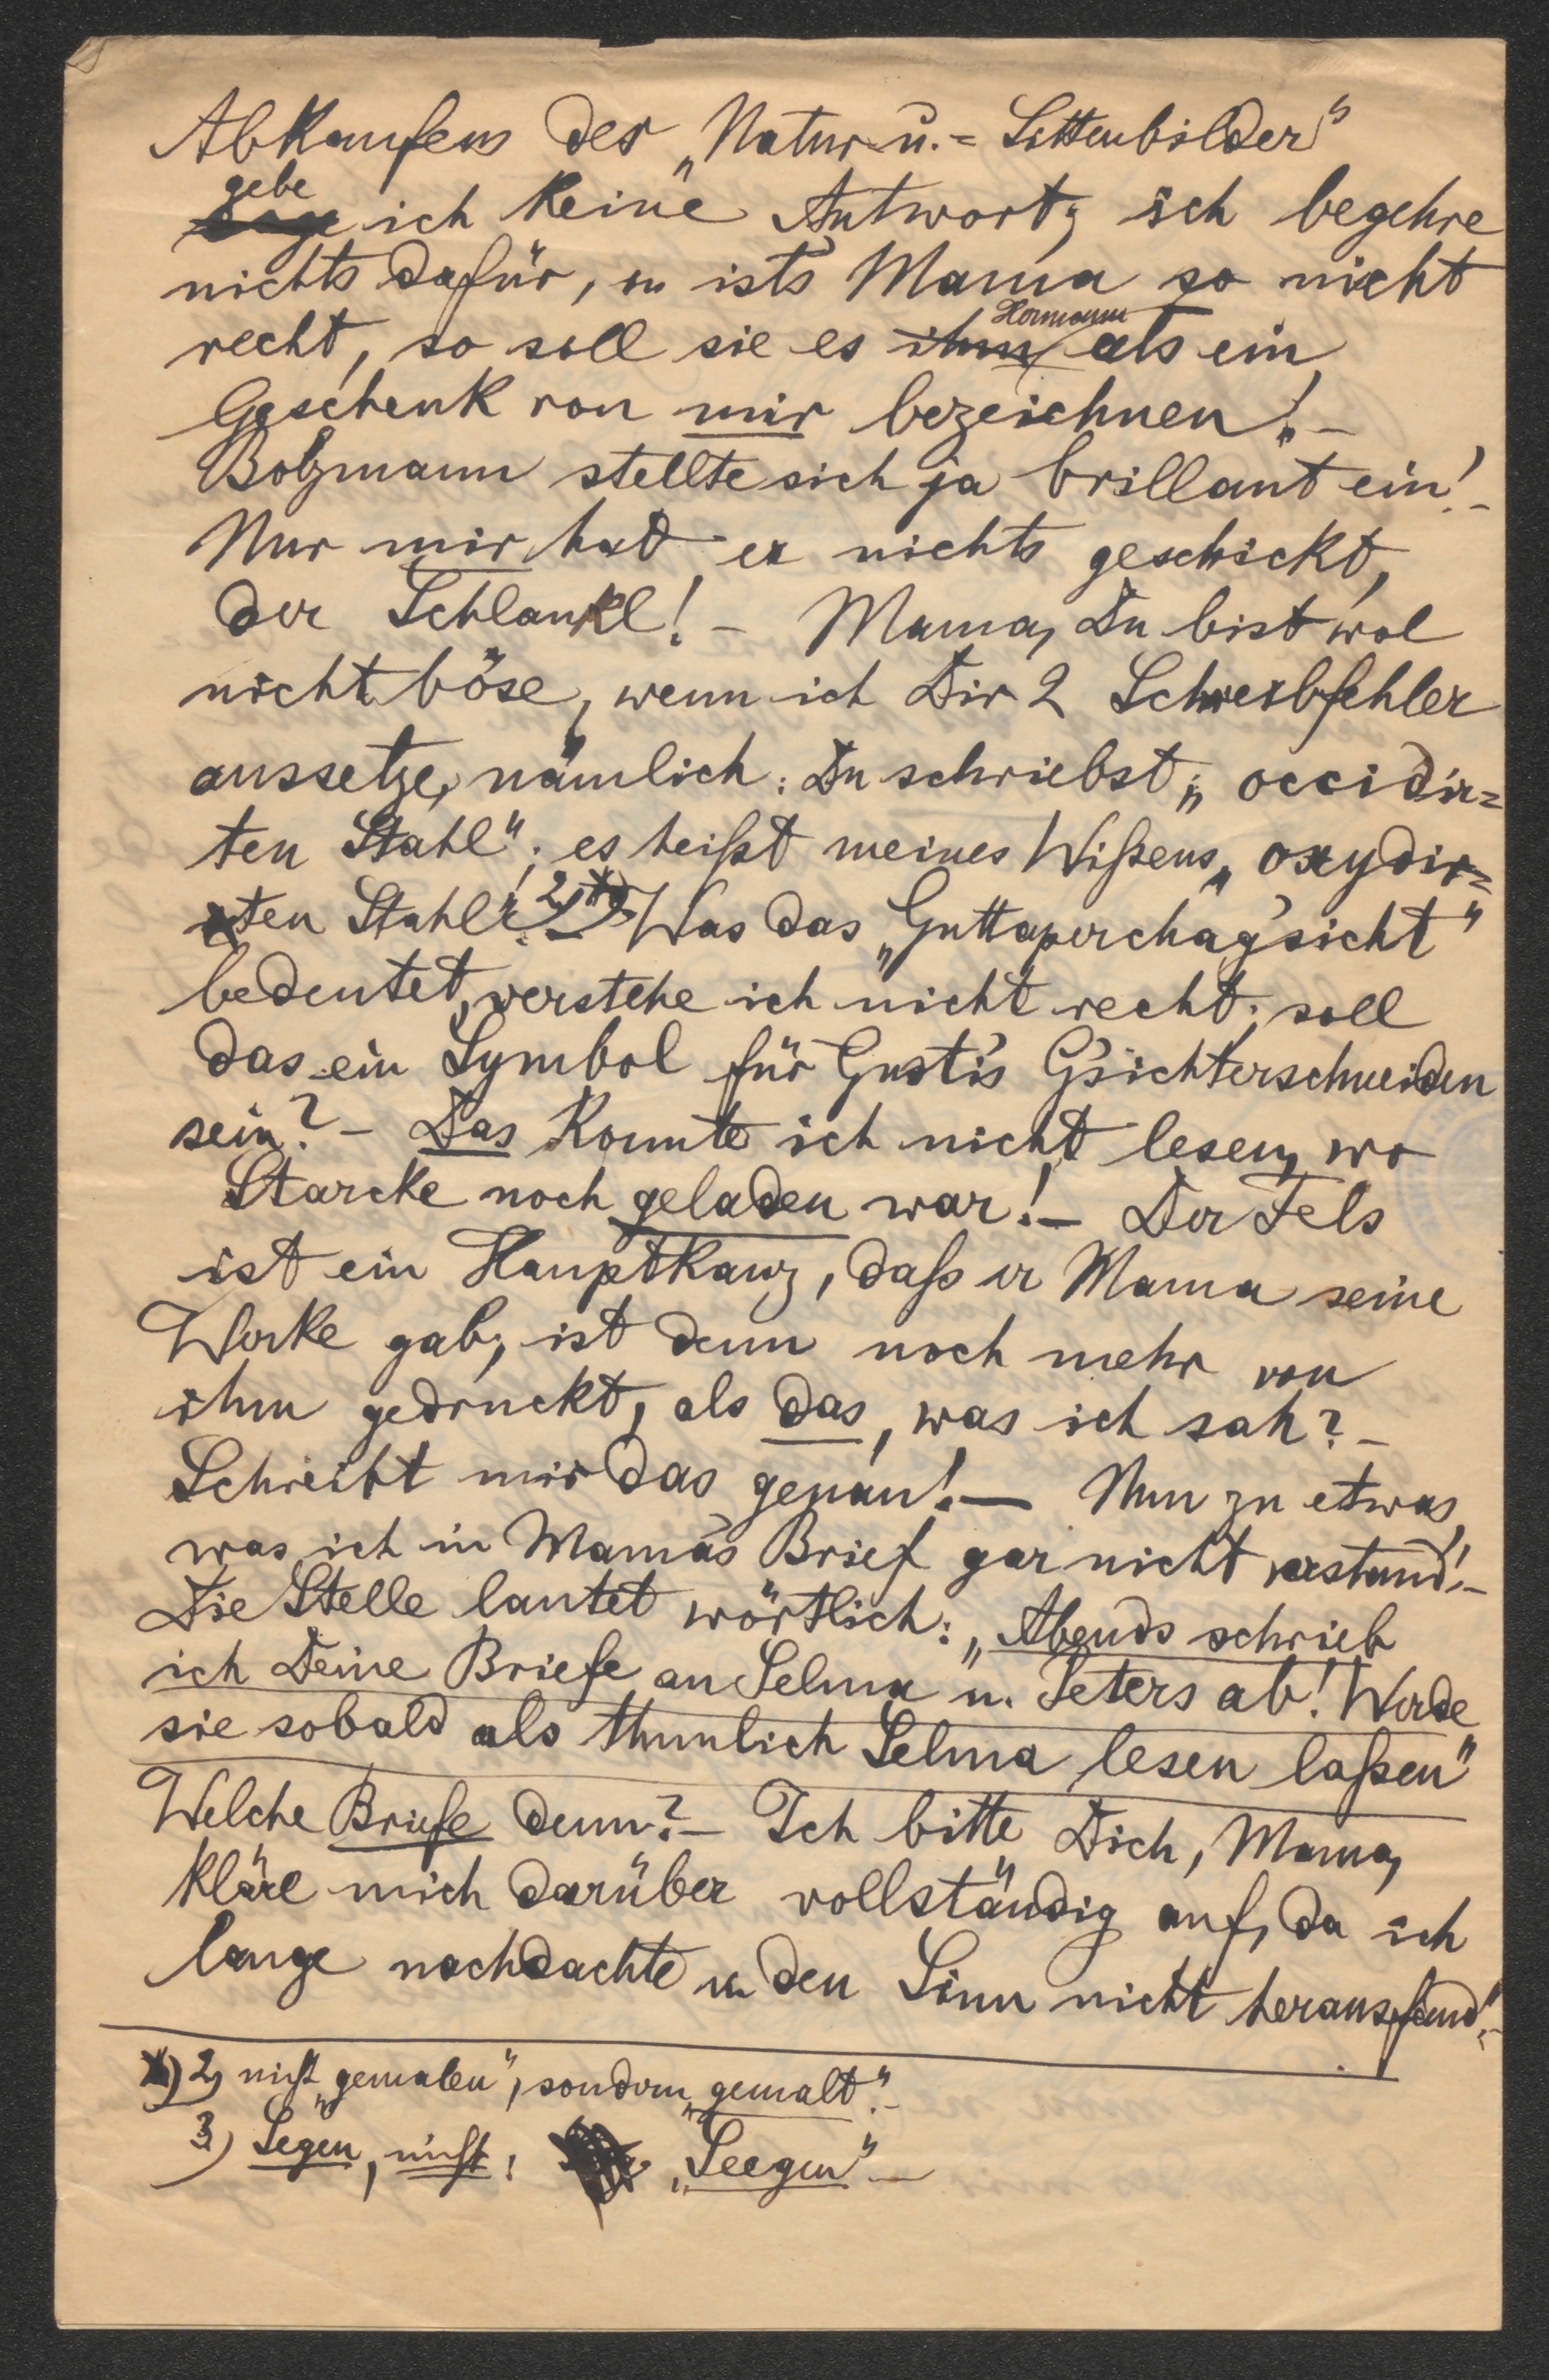 Abkaufens der „Natur- u.= Sittenbilder"
gebe ich keine Antwort; ich begehre
nichts dafür, u ist's Mama so nicht
recht, so soll sie es ihm Hermann als ein
Geschenk von mir bezeichnen! –
Bolzmann stellte sich ja brillant ein! –
Nur mir hat er nichts geschickt,
der Schlankl! – Mama, Du bist wol
nicht böse, wenn ich Dir 2 Schreibfehler
aussetze, nämlich: Du schriebst: „occidir=
ten Stahl"; es heißt meines Wißens „oxydir=
ten Stahl". 2) *) Was das „Guttaperchag'sicht"
bedeutet, verstehe ich nicht recht; soll
das ein Symbol für Gusti's G'sichterschneiden
sein? – Das konnte ich nicht lesen, wo
Starcke noch geladen war! – Der Fels
ist ein Hauptkauz, daß er Mama seine
Werke gab; ist denn noch mehr von
ihm gedruckt, als das, was ich sah? –
Schreibt mir das genau! – Nun zu etwas,
was ich in Mama's Brief gar nicht verstand! –
Die Stelle lautet wörtlich: „Abends schrieb
ich Deine Briefe an Selma u. Peters ab! Werde
sie sobald als thunlich Selma lesen laßen"
Welche Briefe denn? – Ich bitte Dich, Mama,
kläre mich darüber vollständig auf, da ich
lange nachdachte u. den Sinn nicht herausfand! –
*) 2) nicht „gemalen", sondern „gemalt". –
3) Segen, nicht: „Seegen" –